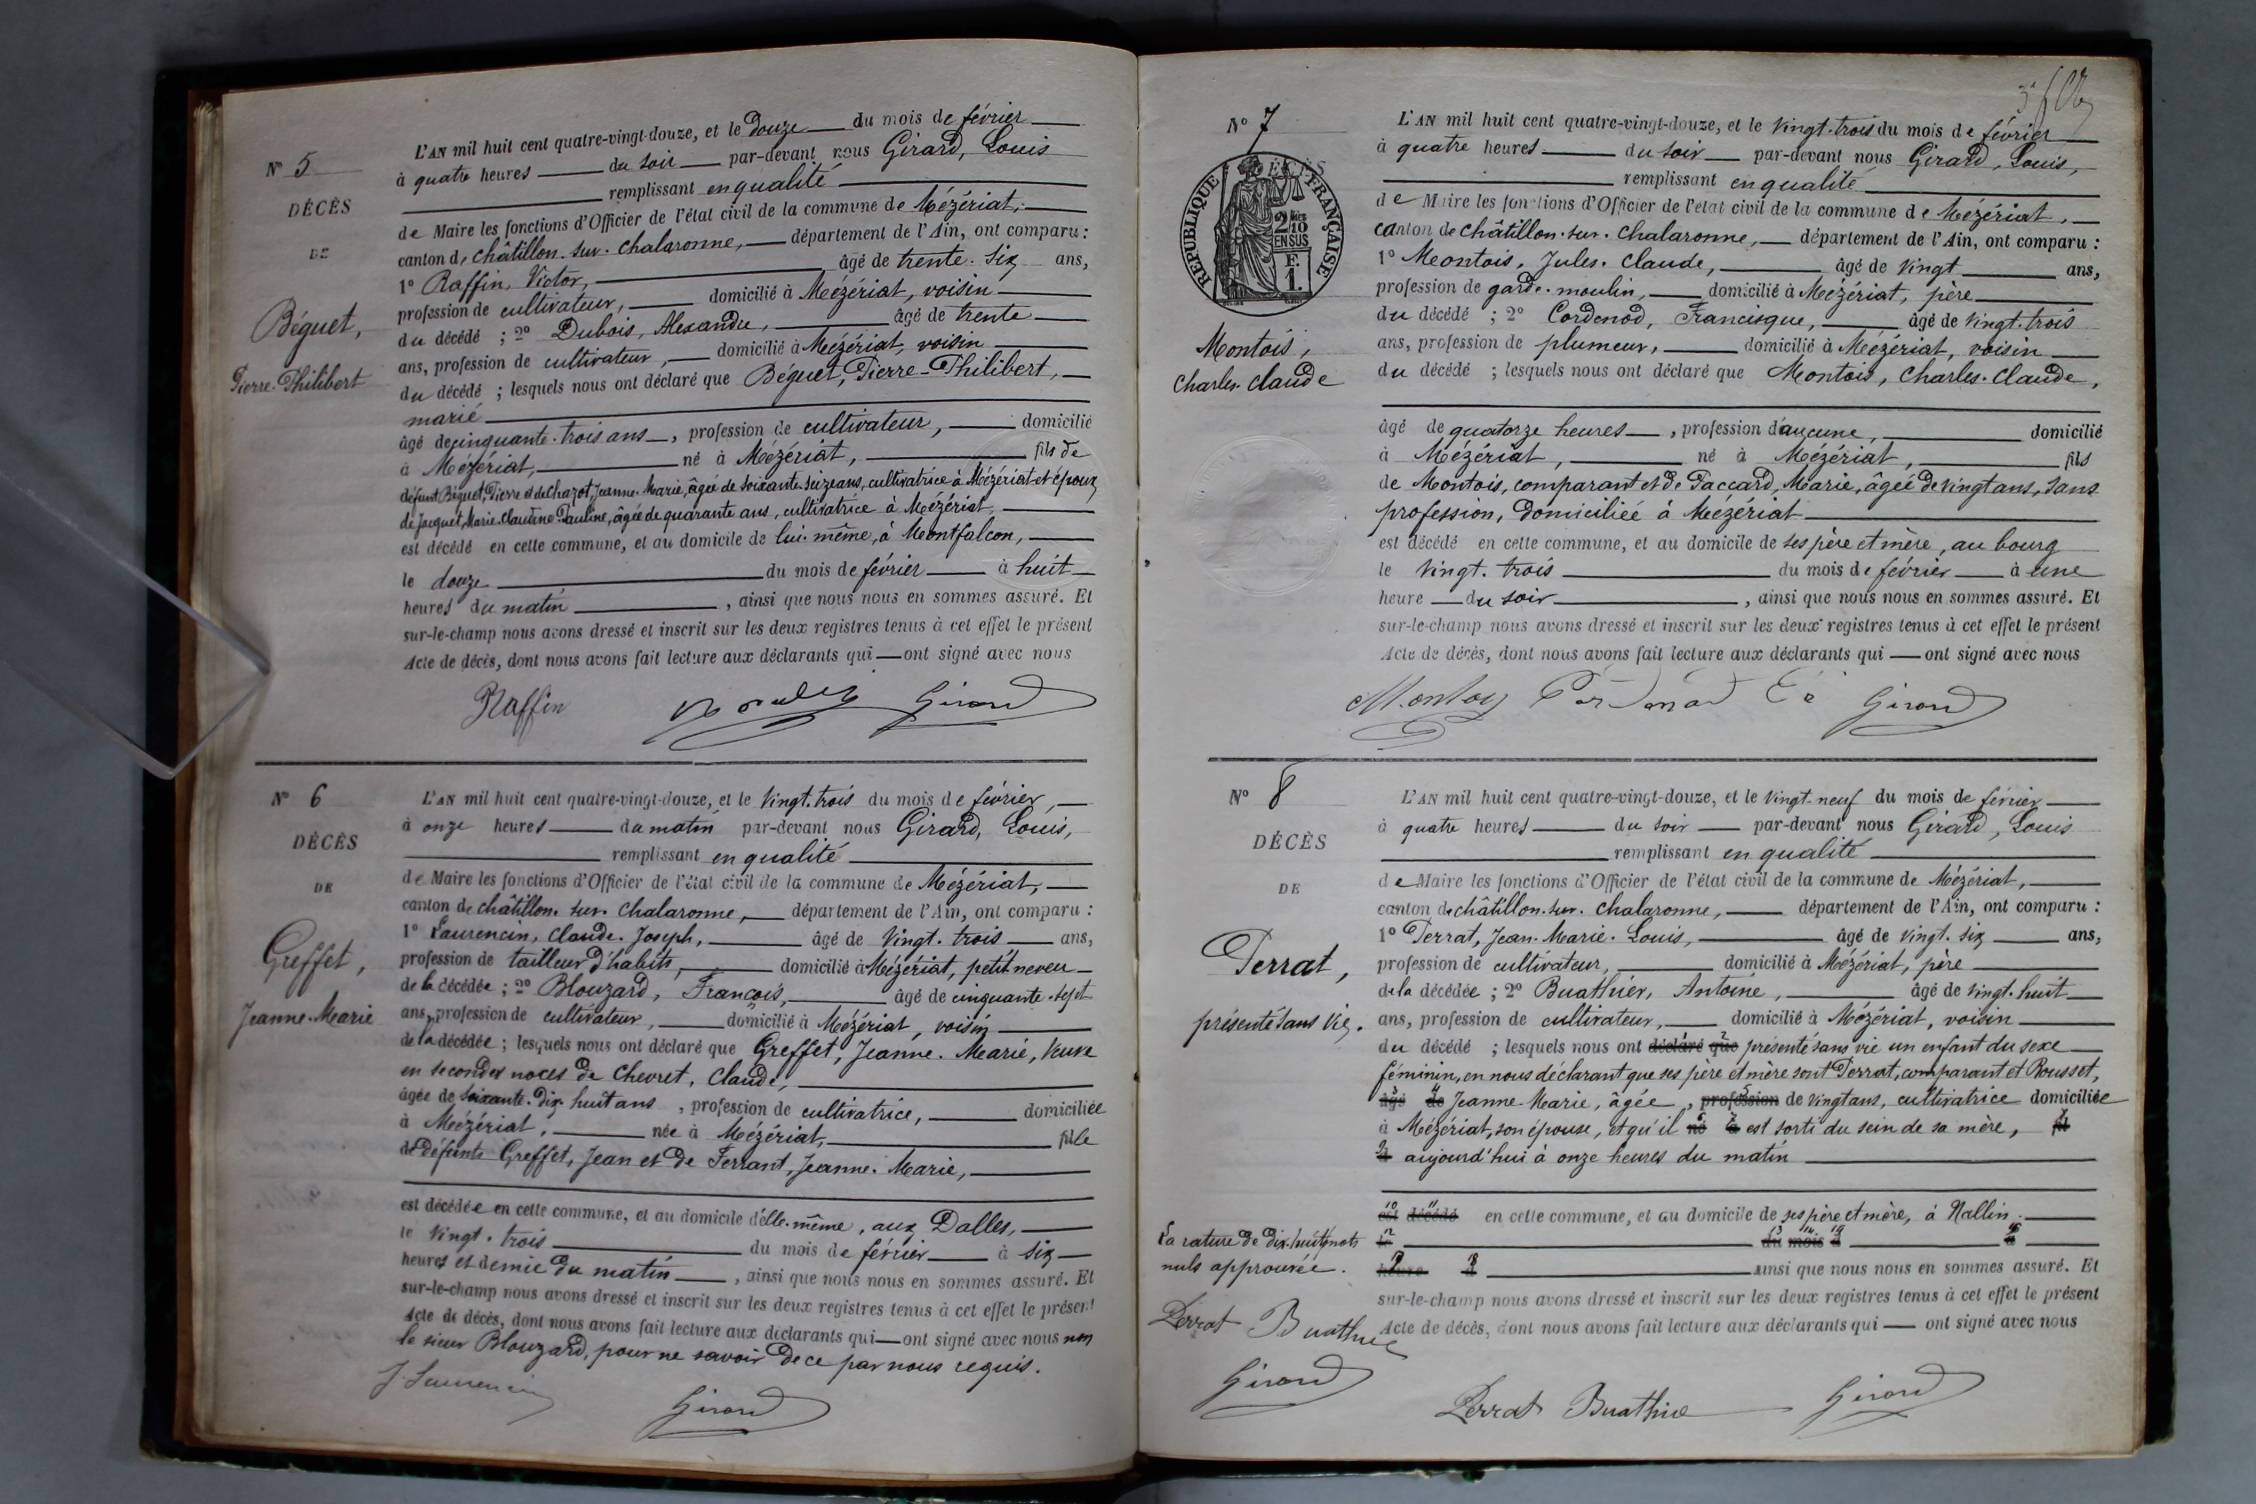 N° 5
DÉCÈS
DE
Béguet,
Pierre-Philibert
L'AN mil huit cent quatre-vingt-douze, et le douze du mois de février
à quatre heures du soir par-devant nous Girard, Louis
remplissant en qualité
de Maire les fonctions d'Officier de l'état civil de la commune de Mézériat,
canton de châtillon-sur-chalaronne, département de l'Ain, ont comparu :
1° Raffin, Victor, âgé de trente-six ans,
profession de cultivateur, domicilié à Mézériat, voisin
du décédé ; 2° Dubois, Alexandre, âgé de trente
ans, profession de cultivateur, domicilié à Mézériat, voisin
du décédé ; lesquels nous ont déclaré que Béguet, Pierre-Philibert,
marié
âgé de cinquante-trois ans, profession de cultivateur, domicilié
à Mézériat, né à Mézériat, fils de
défunt Béguet, Pierre et de Chazot, Jeanne-Marie, âgée de soixante-seize ans, cultivatrice à Mézériat et époux
de Jacquet, Marie-Claudine-Pauline, âgée de quarante ans, cultivatrice à Mézériat,
est décédé en cette commune, et au domicile de lui-même, à Montfalcon,
le douze du mois de février à huit
heures du matin, ainsi que nous nous en sommes assuré. Et
sur-le-champ nous avons dressé et inscrit sur les deux registres tenus à cet effet le présent
Acte de décès, dont nous avons fait lecture aux déclarants qui ont signé avec nous
Raffin Girard
N° 6
DÉCÈS
DE
Greffet,
Jeanne-Marie
L'AN mil huit cent quatre-vingt-douze, et le vingt-trois du mois de février,
à onze heures du matin par-devant nous Girard, Louis,
remplissant en qualité
de Maire les fonctions d'Officier de l'état civil de la commune de Mézériat,
canton de châtillon-sur-chalaronne, département de l'Ain, ont comparu :
1° Laurencin, Claude-Joseph, âgé de vingt-trois ans,
profession de tailleur d'habits, domicilié à Mézériat, petit neveu
de la décédée ; 2° Blouzard, François, âgé de cinquante-sept
ans, profession de cultivateur, domicilié à Mézériat, voisin
de la décédée ; lesquels nous ont déclaré que Greffet, Jeanne-Marie, veuve
en secondes noces de Chevret, Claude,
âgée de soixante-dix-huit ans, profession de cultivatrice, domiciliée
à Mézériat, née à Mézériat, fille
de défunts Greffet, Jean et de Ferrant, Jeanne-Marie,
est décédée en cette commune, et au domicile d'elle-même, aux Dalles,
le vingt-trois du mois de février à six
heures et demie du matin, ainsi que nous nous en sommes assuré. Et
sur-le-champ nous avons dressé et inscrit sur les deux registres tenus à cet effet le présent
Acte de décès, dont nous avons fait lecture aux déclarants qui ont signé avec nous non
le sieur Blouzard, pour ne savoir de ce par nous requis.
J. Laurencin Girard
N° 7
DÉCÈS
RÉPUBLIQUE FRANÇAISE
2/10 EN SUS
F. 1.
Montois,
Charles-Claude
L'AN mil huit cent quatre-vingt-douze, et le vingt-trois du mois de février
à quatre heures du soir par-devant nous Girard, Louis,
remplissant en qualité
de Maire les fonctions d'Officier de l'état civil de la commune de Mézériat,
canton de châtillon-sur-chalaronne, département de l'Ain, ont comparu :
1° Montois, Jules-Claude, âgé de vingt ans,
profession de garde-moulin, domicilié à Mézériat, père
du décédé ; 2° Cordenod, Francisque, âgé de vingt-trois
ans, profession de plumeur, domicilié à Mézériat, voisin
du décédé ; lesquels nous ont déclaré que Montois, Charles-Claude,
âgé de quatorze heures, profession d'aucune, domicilié
à Mézériat, né à Mézériat, fils
de Montois, comparant et de Paccard, Marie, âgée de vingt ans, sans
profession, domiciliée à Mézériat
est décédé en cette commune, et au domicile de ses père et mère, au bourg
le vingt-trois du mois de février à une
heure du soir, ainsi que nous nous en sommes assuré. Et
sur-le-champ nous avons dressé et inscrit sur les deux registres tenus à cet effet le présent
Acte de décès, dont nous avons fait lecture aux déclarants qui ont signé avec nous
Girard
N° 8
DÉCÈS
DE
Perrat,
présenté sans vie.
L'AN mil huit cent quatre-vingt-douze, et le vingt-neuf du mois de février
à quatre heures du soir par-devant nous Girard, Louis
remplissant en qualité
de Maire les fonctions d'Officier de l'état civil de la commune de Mézériat,
canton de châtillon-sur-chalaronne, département de l'Ain, ont comparu :
1° Perrat, Jean-Marie-Louis, âgé de vingt-six ans,
profession de cultivateur, domicilié à Mézériat, père
de la décédée ; 2° Buathier, Antoine, âgé de vingt-huit
ans, profession de cultivateur, domicilié à Mézériat, voisin
du décédé ; lesquels nous ont déclaré que présenté sans vie un enfant du sexe
féminin, en nous déclarant que ses père et mère sont Perrat, comparant et Rousset,
âgé de Jeanne-Marie, âgée, profession de vingt ans, cultivatrice domiciliée
à Mézériat, son épouse, et qu'il né à est sorti du sein de sa mère, fil
aujourd'hui à onze heures du matin
est décédé en cette commune, et au domicile de ses père et mère, à Nallin.
le du mois d à
heure d ainsi que nous nous en sommes assuré. Et
sur-le-champ nous avons dressé et inscrit sur les deux registres tenus à cet effet le présent
Acte de décès, dont nous avons fait lecture aux déclarants qui ont signé avec nous
La rature de dix-huit mots
nuls approuvée.
Perrat Buathier
Girard
Perrat Buathier Girard